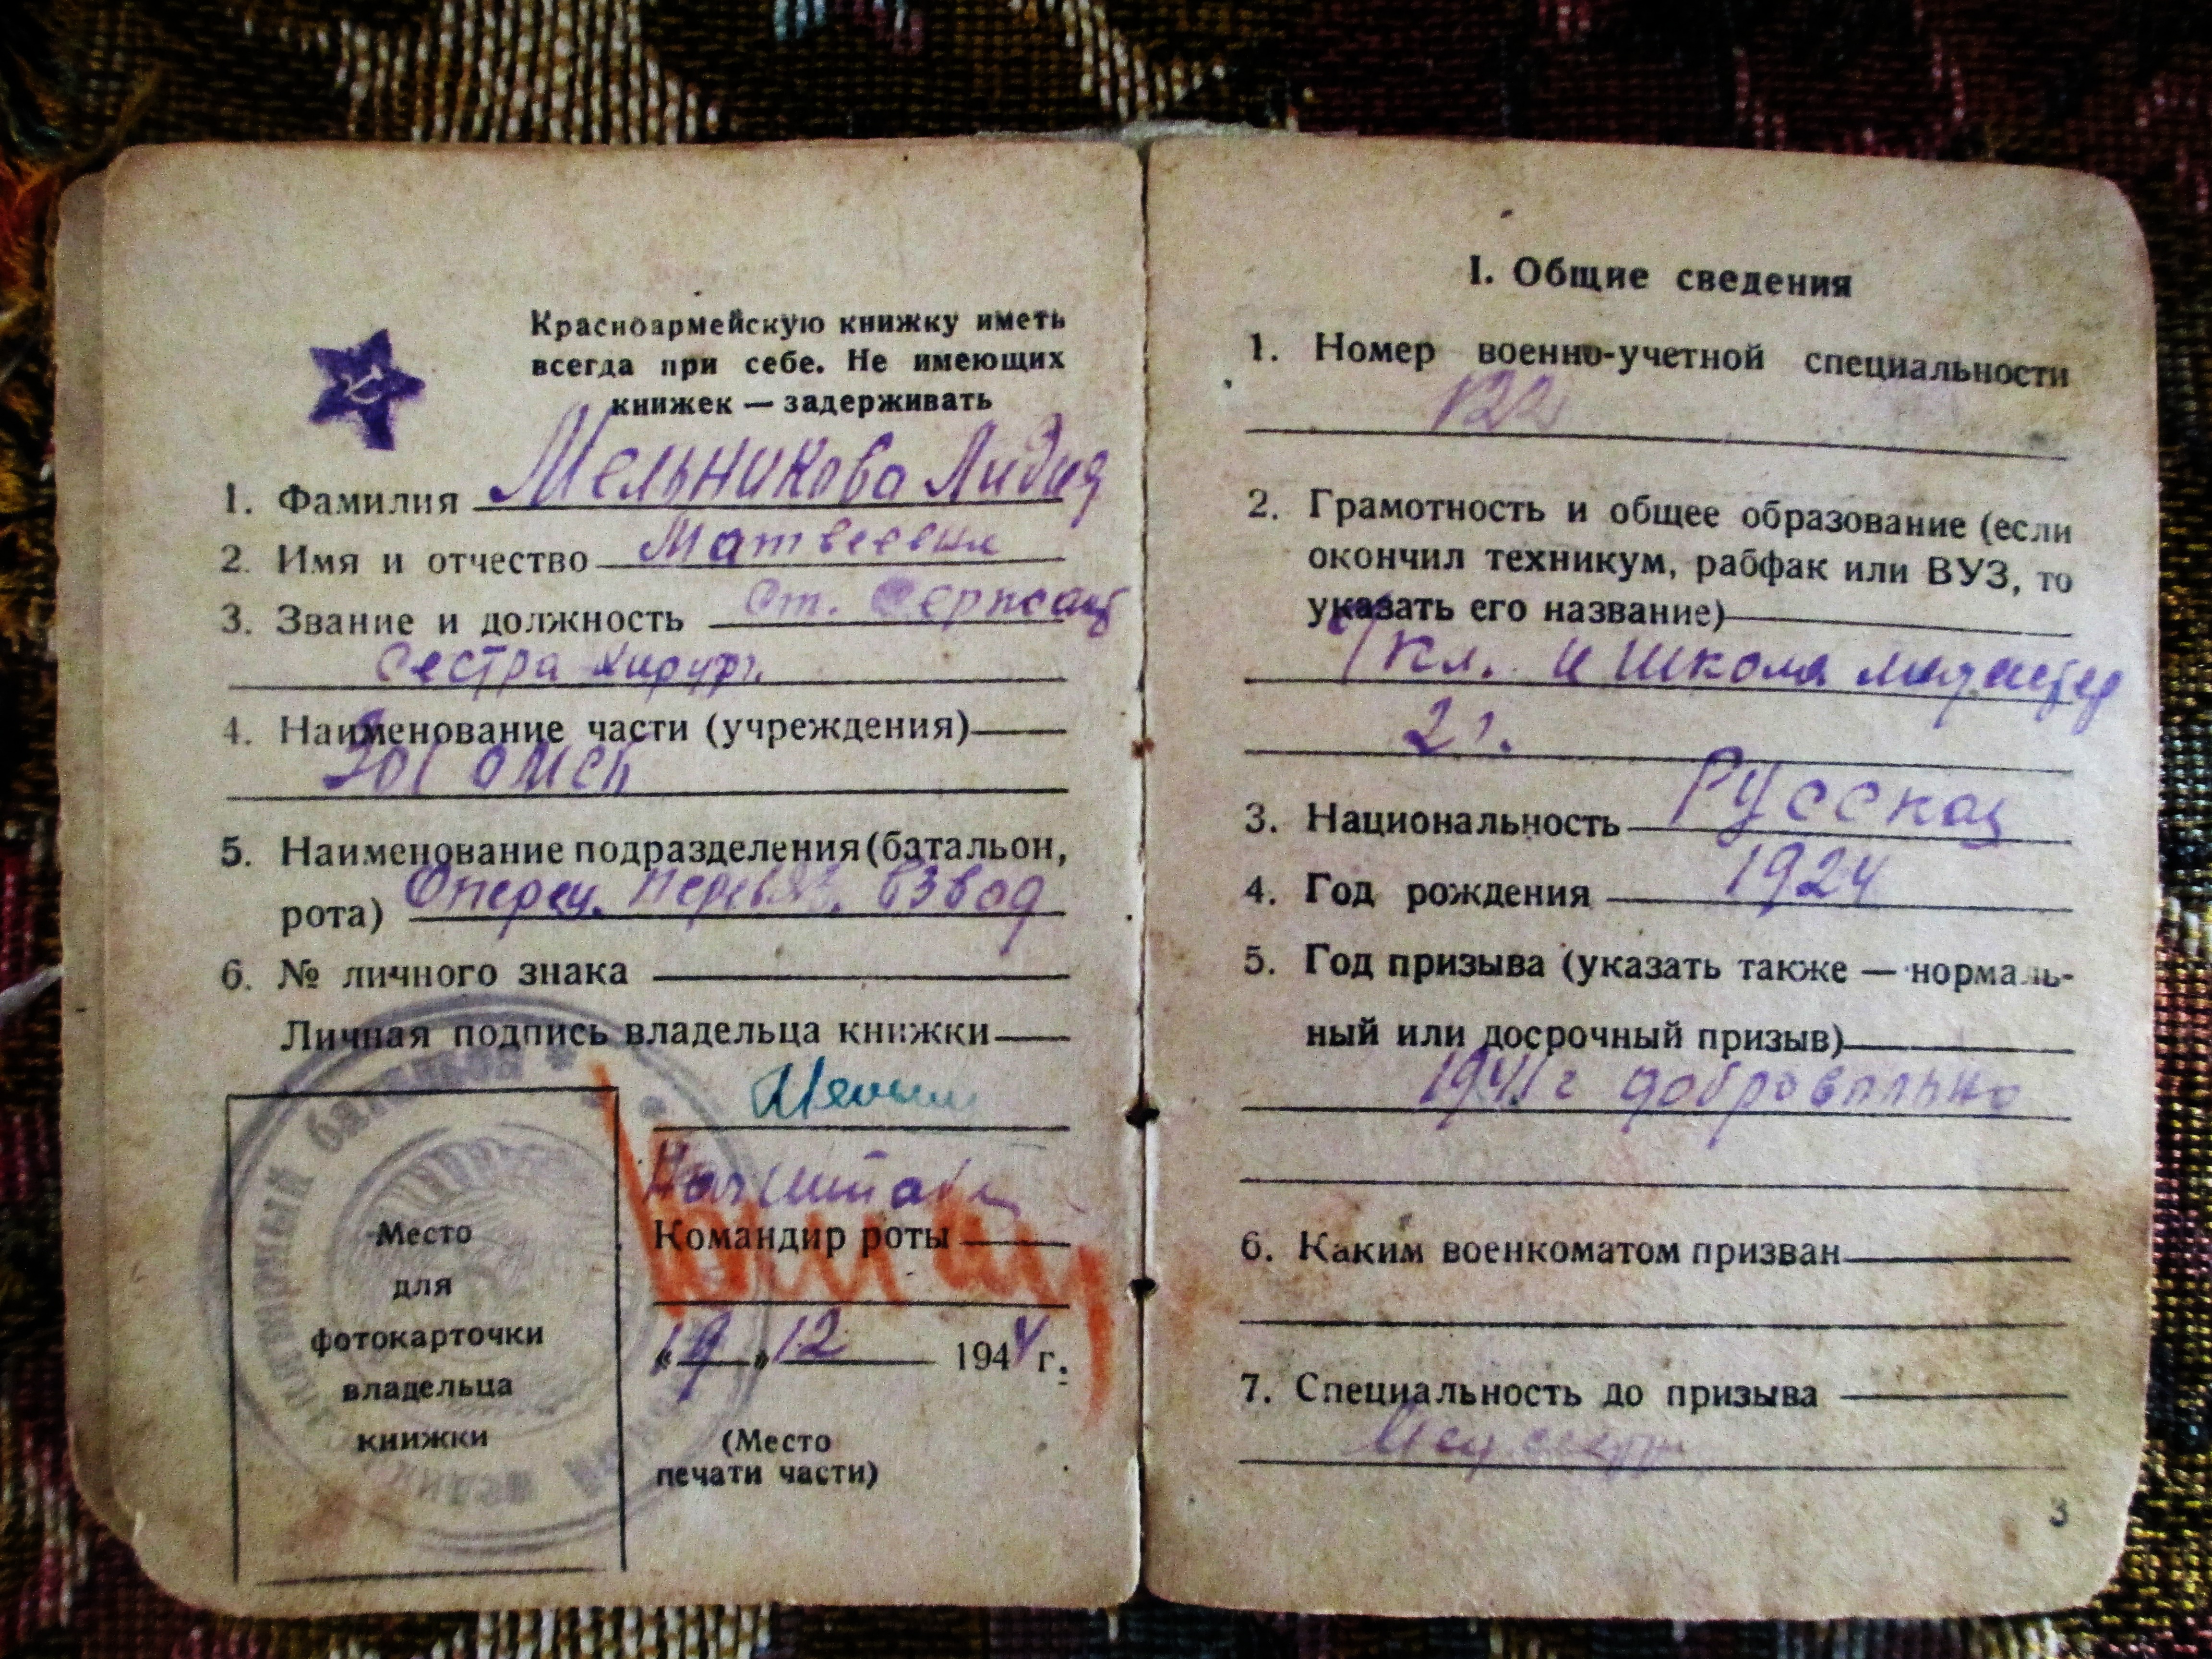 Красноармейскую книжку иметь
всегда при себе. Не имеющих
книжек — задерживать
1. Фамилия Мельникова Лидия
2. Имя и отчество Матвеевна
3. Звание и должность Ст. Сержант
Сестра хирург.
4. Наименование части (учреждения)
омсб
5. Наименование подразделения (батальон,
рота) Операц. перевяз. взвод
6. № личного знака
Личная подпись владельца книжки
Начштаба
Командир роты
«19» 12 1944 г.
(Место
печати части)
Место
для
фотокарточки
владельца
книжки
батальон
I. Общие сведения
1. Номер военно-учетной специальности
122
2. Грамотность и общее образование (если
окончил техникум, рабфак или ВУЗ, то
указать его название)
кл. и школа медсестер
2 г.
3. Национальность Русская
4. Год рождения 1924
5. Год призыва (указать также — нормаль-
ный или досрочный призыв)
1941 г добровольно
6. Каким военкоматом призван
7. Специальность до призыва
3